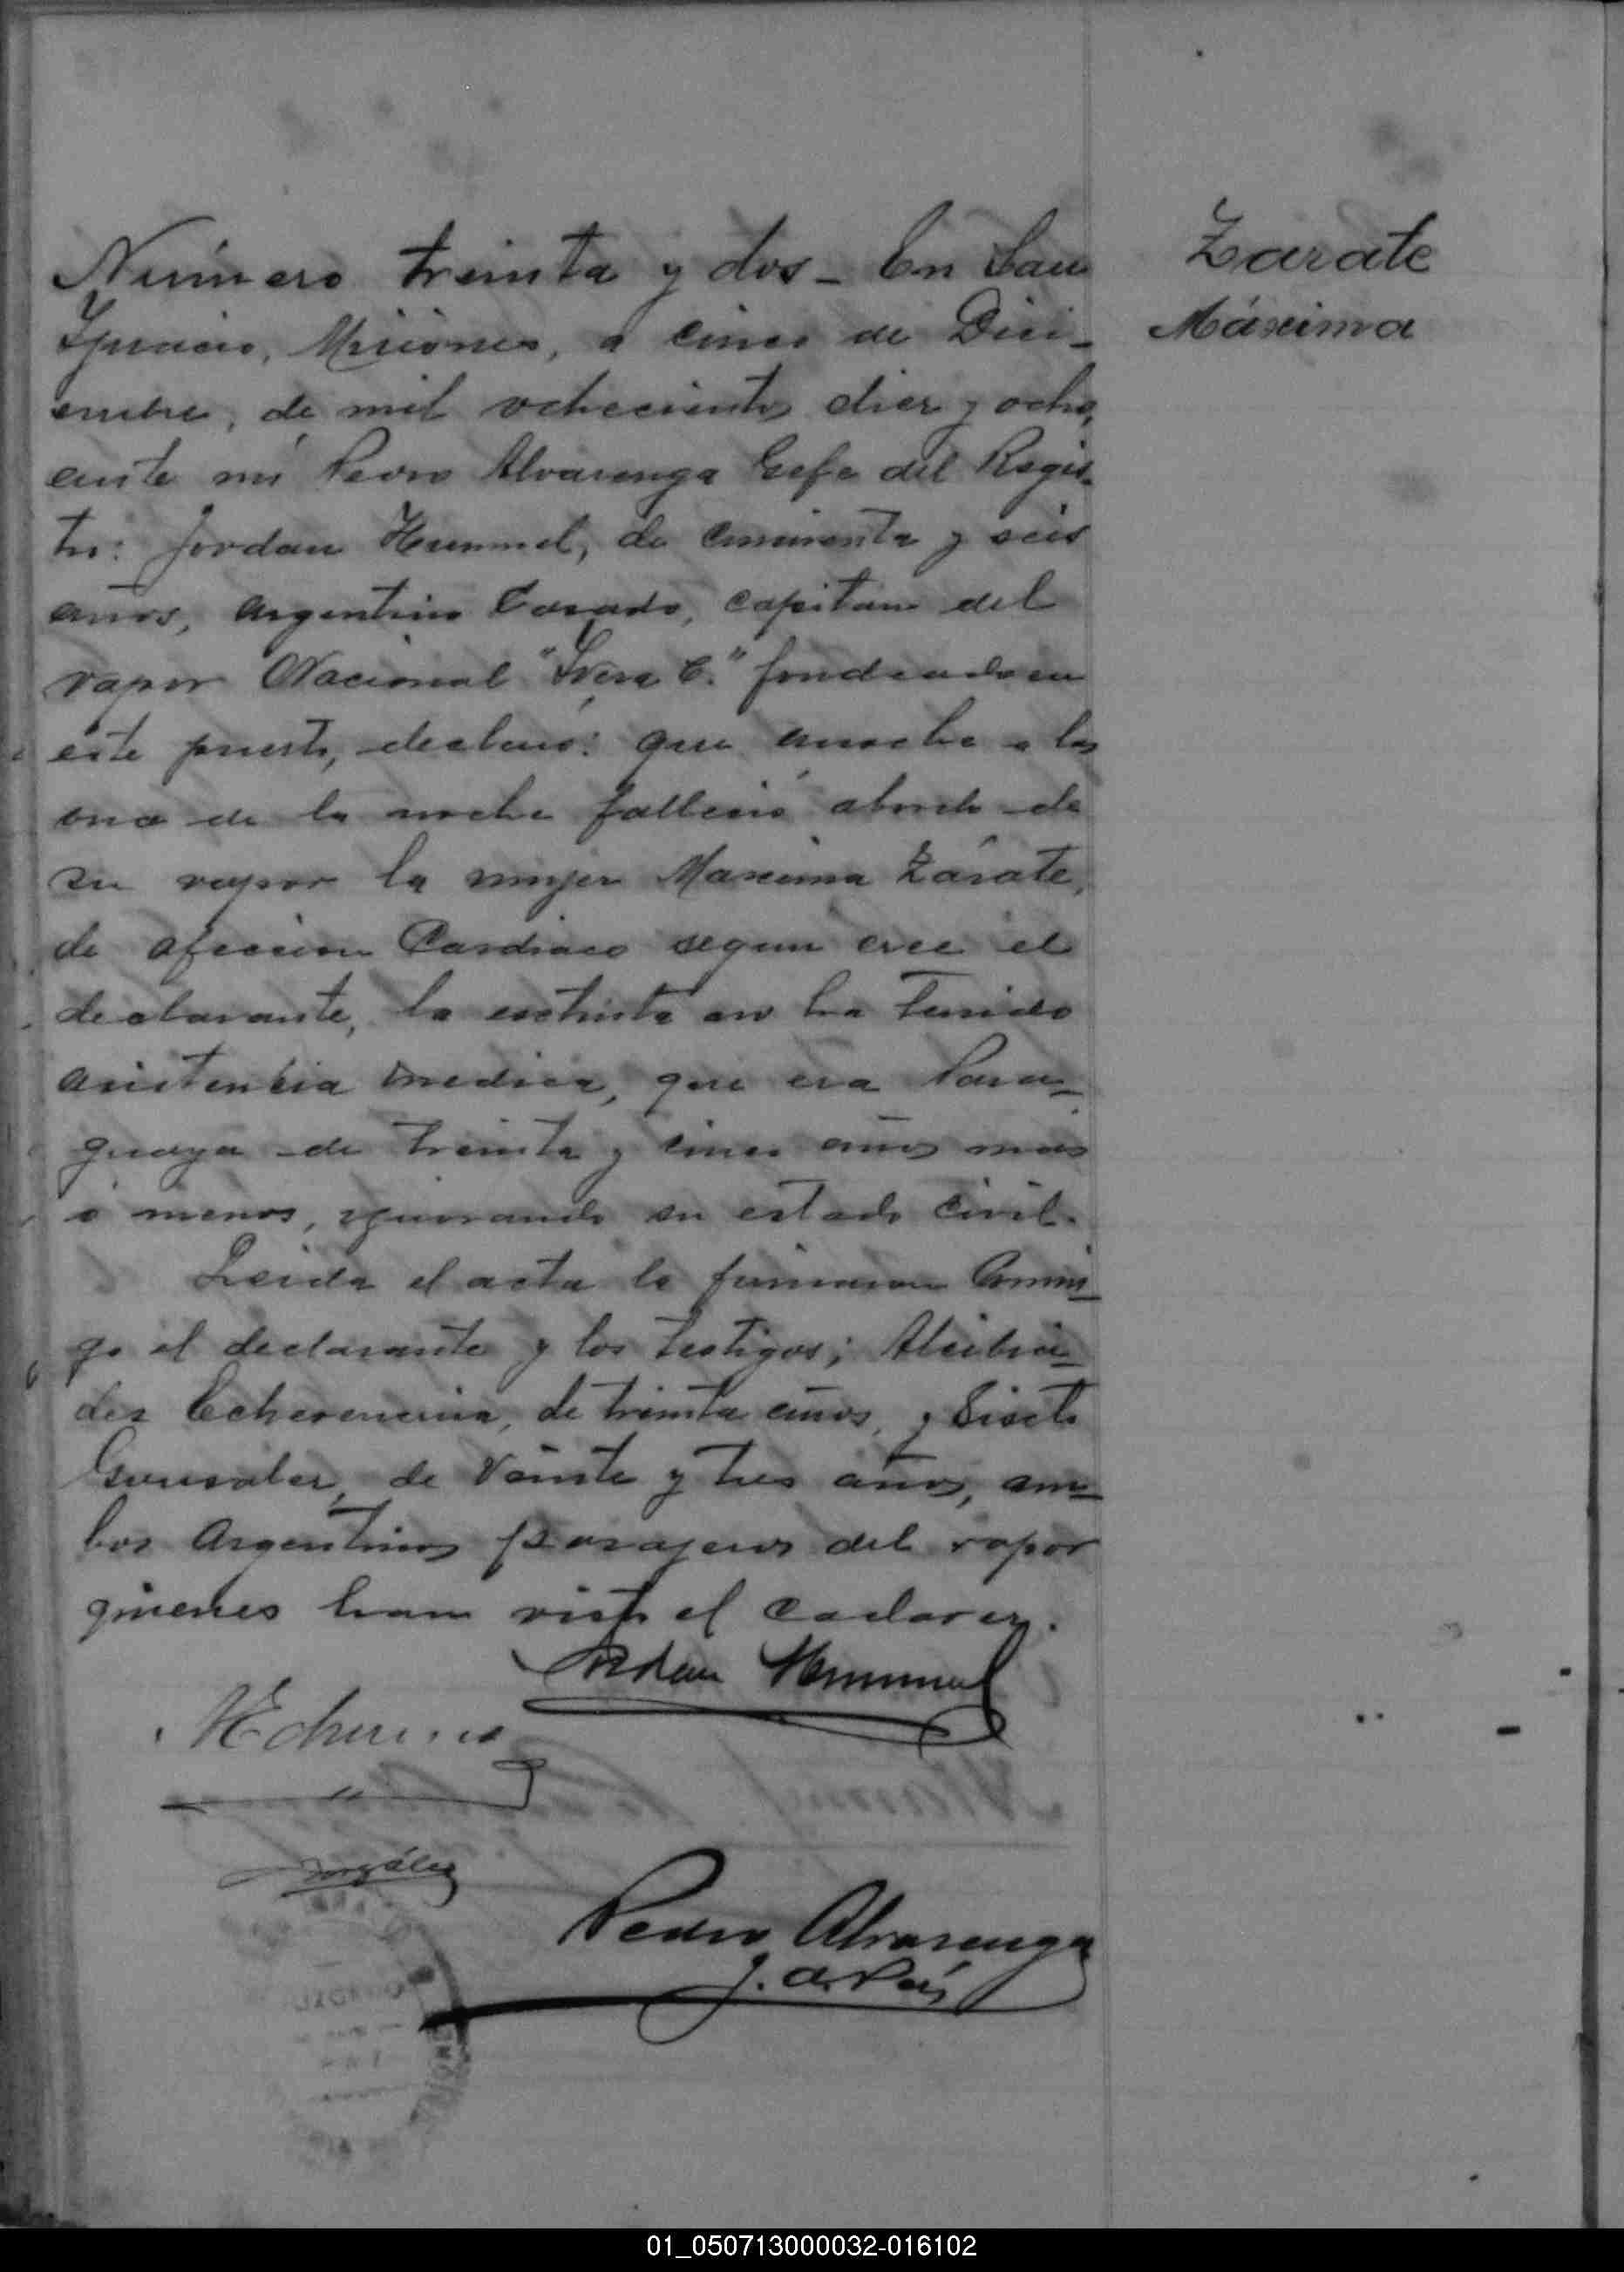 Número treinta y dos - En San
Ignacio, Misiones, a cinco de Dici-
embre, de mil ochocientos diez y ocho,
ante mi Pedro Alvarenga Gefe del Regis-
tro: Jordan Hummel, de cincuenta y seis
años, argentino Casado, capitan del
vapor Nacional fondeado en
este puerto, declaró: que anoche a las
once de la noche falleció abordo de
su vapor la mujer Maxima Zárate,
de afeccion Cardiaca segun cree el
declarante, la extinta no ha tenido
asistencia medica, que era Para-
guaya de treinta y cinco años mas
o menos, ignorando su estado civil.
Leida el acta la firmaron Conmi-
go el declarante y los testigos; Alcibia-
des de treinta años, y Sixto
Gonzalez, de Veinte y tres años, am-
bos Argentinos pasajeros del vapor
quienes han visto el cadaver.
Jordan Hummel
González
Pedro Alvarenga
J. de Paz
Zarate
Máxima
01_050713000032-016102